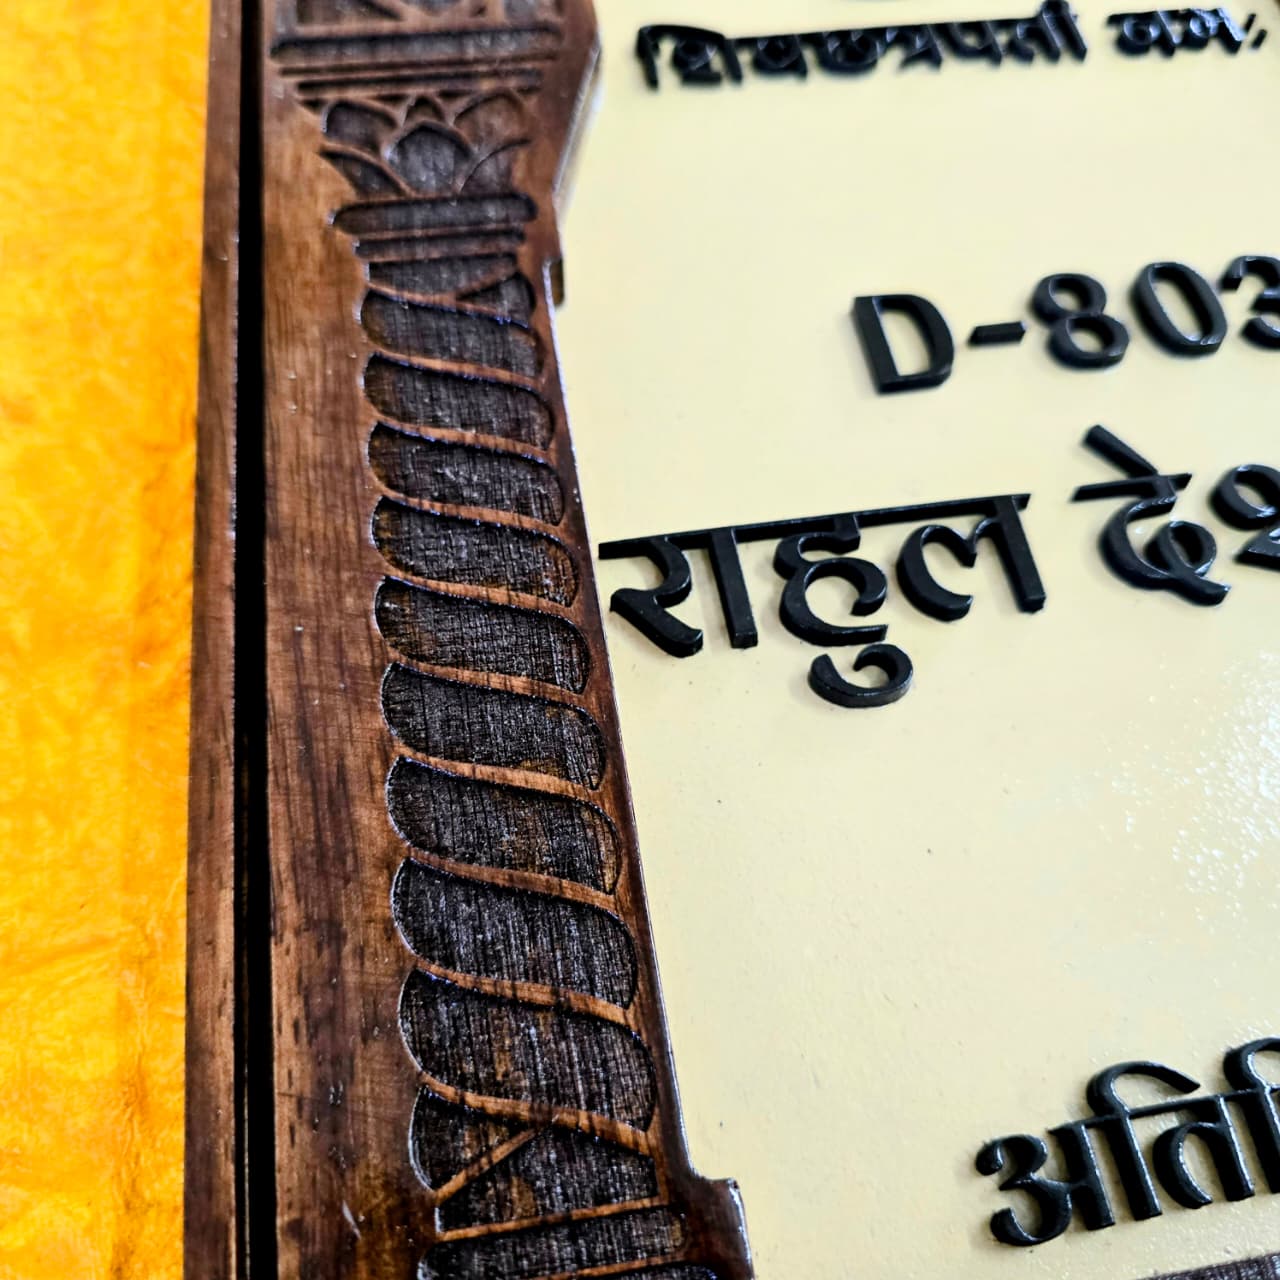 शिवछत्रपती नमः
D-803
राहुल देश
अति